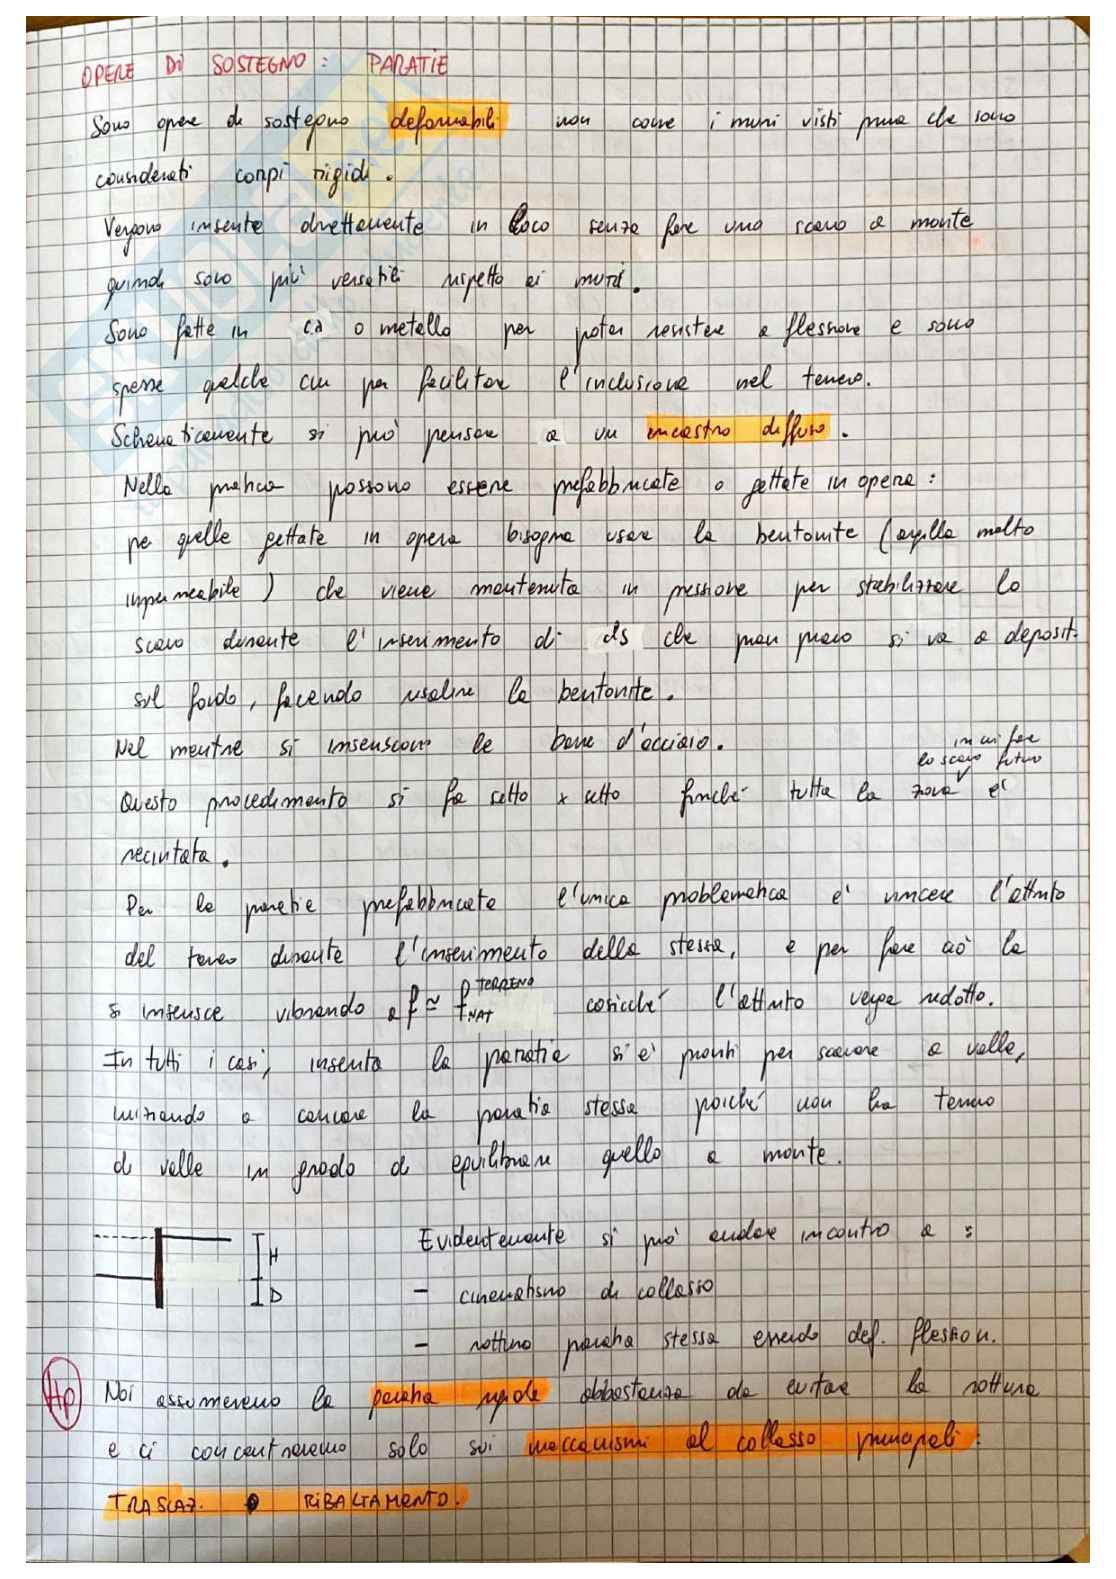 OPERE DI SOSTEGNO : PARATIE
Sono opere di sostegno deformabili non come i muri visti prima che sono
considerati corpi rigidi.
Vengono inserite direttamente in loco senza fare uno scavo a monte
quindi sono più versatili rispetto ai muri.
Sono fatte in c.a o metallo per poter resistere a flessione e sono
spesse qualche cm per facilitare l'inclusione nel terreno.
Schematicamente si può pensare a un incastro diffuso.
Nella pratica possono essere prefabbricate o gettate in opera :
pe quelle gettate in opera bisogna usare la bentonite (argilla molto
impermeabile) che viene mantenuta in pressione per stabilizzare lo
scavo durante l'inserimento di cls che man mano si va a deposit.
sul fondo, facendo risalire la bentonite.
Nel mentre si inseriscono le barre d'acciaio.
in cui fare
lo scavo futuro
Questo procedimento si fa setto x setto finché tutta la zona è
recintata.
Per le paratie prefabbricate l'unica problematica è vincere l'attrito
del terreno durante l'inserimento della stessa, e per fare ciò la
si inserisce vibrando a f ≃ f NAT TERRENO cosicché l'attrito venga ridotto.
In tutti i casi, inserita la paratia si è pronti per scavare a valle,
iniziando a caricare la paratia stessa poiché non ha terreno
di valle in grado di equilibrare quello a monte.
Evidentemente si può andare incontro a :
H
- cinematismo di collasso
D
- rottura paratia stessa essendo def. flession.
Hp Noi assumeremo la paratia rigida abbastanza da evitare la rottura
e ci concentreremo solo sui meccanismi al collasso principali :
TRASLAZ. o RIBALTAMENTO.